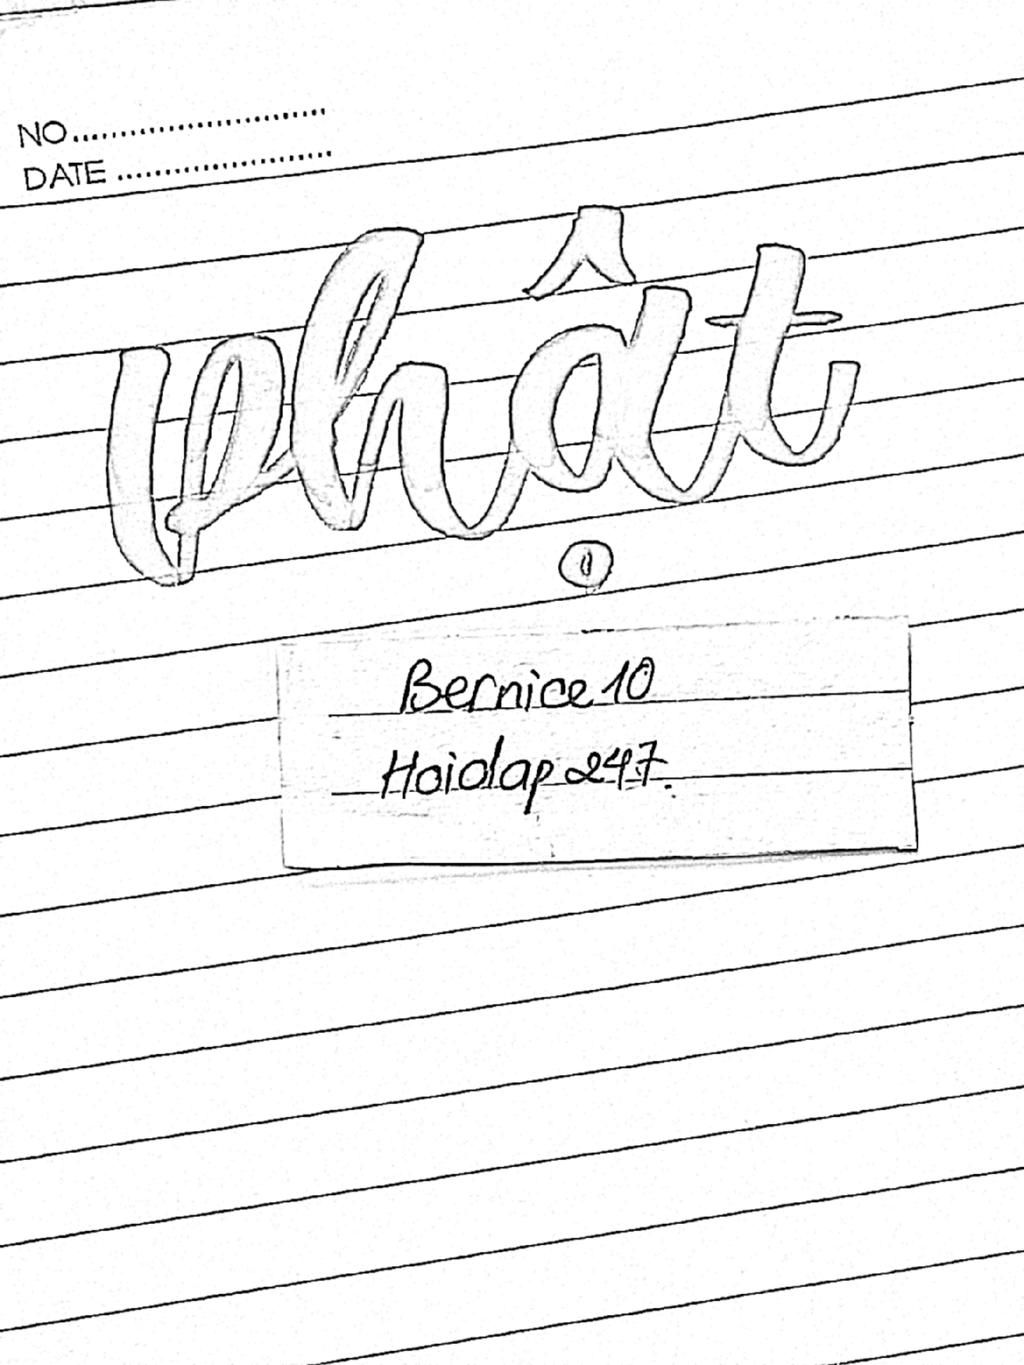 NO
DATE
phật
Bernice 10
Hoidap 247.